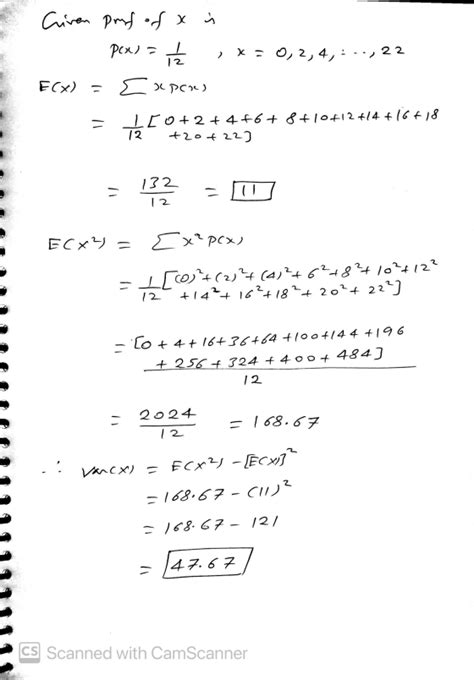 Given pmf of x is
P(x) = 1/12 , x = 0, 2, 4, ..., 22
E(x) = Σ x p(x)
= 1/12 [0+2+4+6+8+10+12+14+16+18
+20+22]
= 132/12 = 11
E(x²) = Σ x² p(x)
= 1/12 [(0)²+(2)²+(4)²+6²+8²+10²+12²
+14²+16²+18²+20²+22²]
= [0+4+16+36+64+100+144+196
+256+324+400+484]
12
= 2024/12 = 168.67
∴ Var(x) = E(x²) - [E(x)]²
= 168.67 - (11)²
= 168.67 - 121
= 47.67
CS Scanned with CamScanner